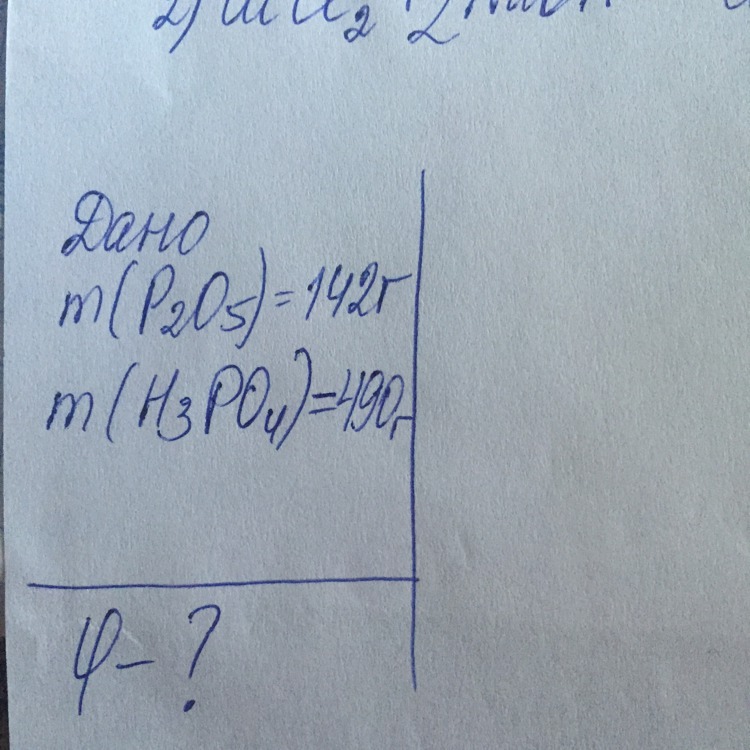 Дано
m(P₂O₅)=142г
m(H₃PO₄)=490г
φ-?